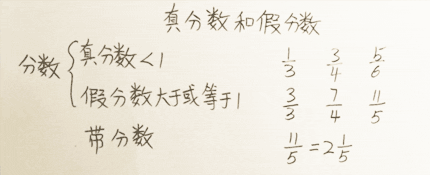 真分数和假分数
分数 { 真分数<1 1/3 3/4 5/6
假分数大于或等于1 3/3 7/4 11/5
带分数 11/5=2 1/5